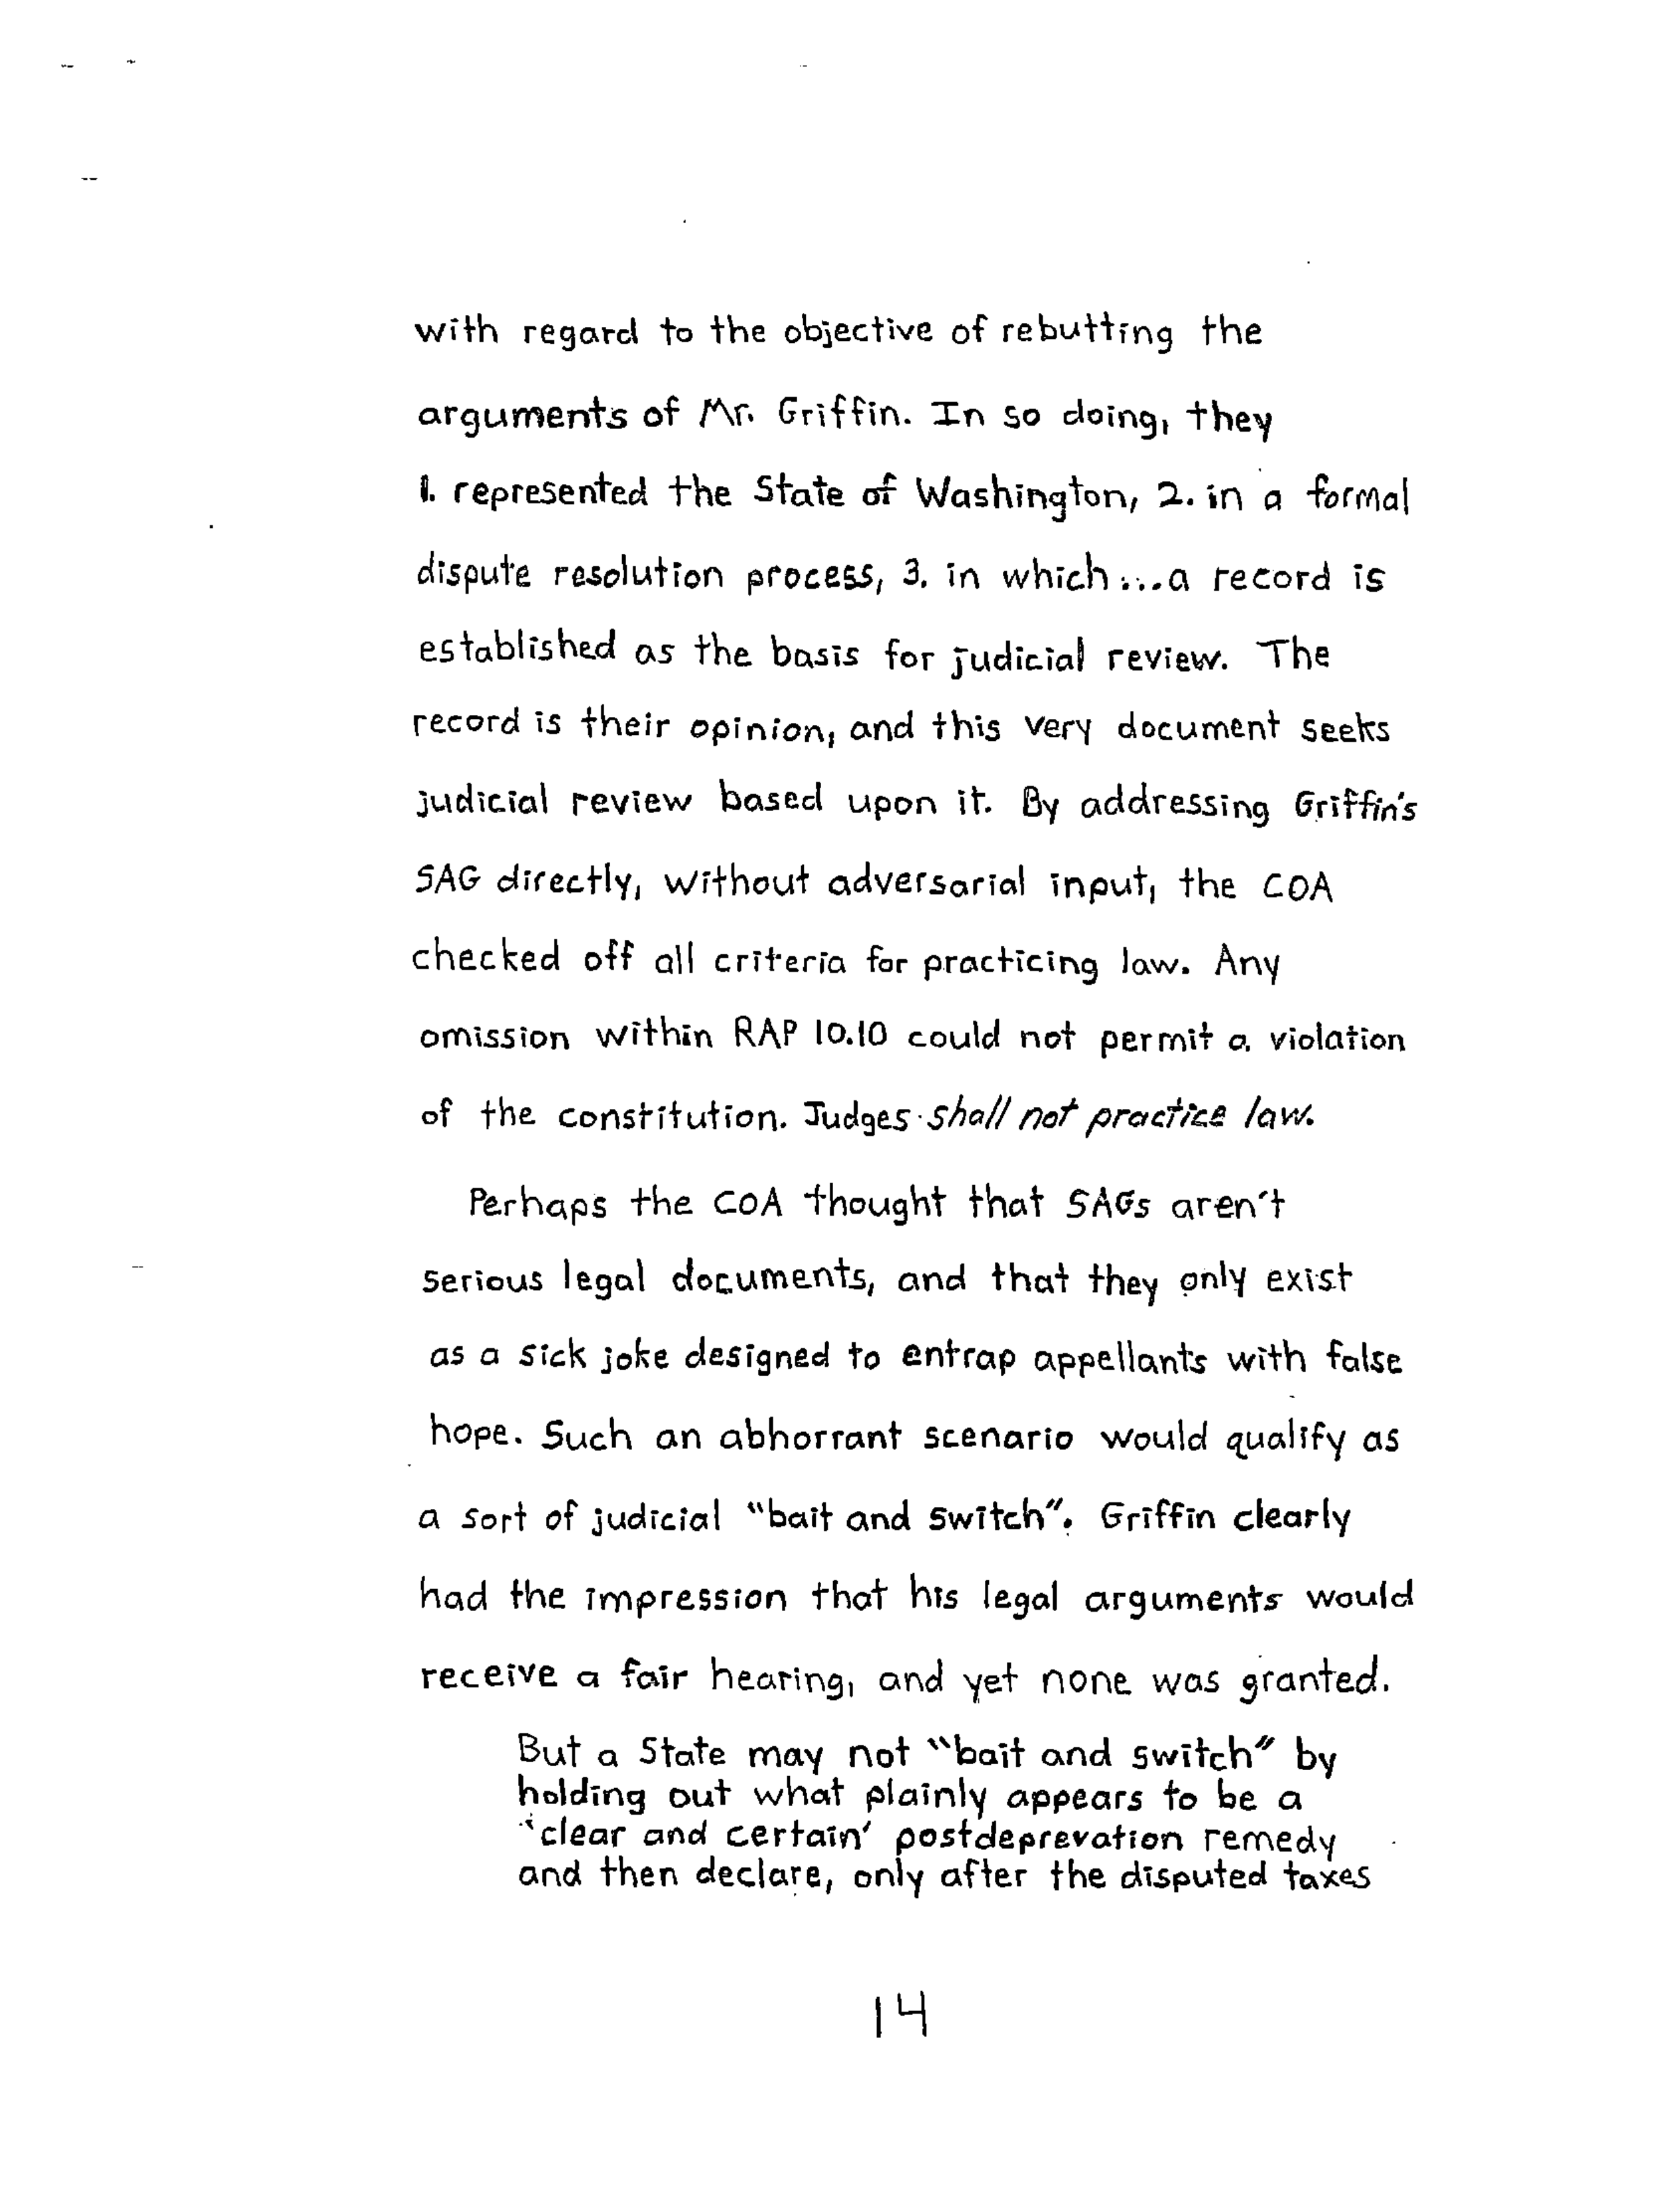 with regard to the objective of rebutting the
arguments of Mr. Griffin. In so doing, they
1. represented the State of Washington, 2. in a formal
dispute resolution process, 3. in which...a record is
established as the basis for judicial review. The
record is their opinion, and this very document seeks
judicial review based upon it. By addressing Griffin's
SAG directly, without adversarial input, the COA
checked off all criteria for practicing law. Any
omission within RAP 10.10 could not permit a violation
of the constitution. Judges shall not practice law.
Perhaps the COA thought that SAGs aren't
serious legal documents, and that they only exist
as a sick joke designed to entrap appellants with false
hope. Such an abhorrant scenario would qualify as
a sort of judicial "bait and switch". Griffin clearly
had the impression that his legal arguments would
receive a fair hearing, and yet none was granted.
But a State may not "bait and switch" by
holding out what plainly appears to be a
'clear and certain' postdeprevation remedy
and then declare, only after the disputed taxes
14